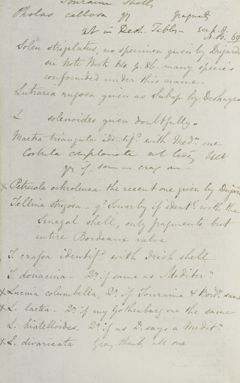 Touraine Shells
Pholas callosa gy fragment
not in Desh. Tables
Solen strigilatus, no specimen given by Dujardin
on Note Book 140 p. many species
confounded under this name
Lutraria rugosa given as Subap by Deshayes
L solenoides given doubtfully
Mactra triangula identif.d with Med.n one
Corbula complanata not
gy if same as crag
x Petricola ochroleuca the recent one given by Dujardin
Tellina strigosa if ident.l with the
Senegal shell, only fragments, but
entire Bordeaux valve
T. crassa identif.d with British shell
T. donacina Dº if same as Mediter.n
x Lucina columbella, Dº if Touraine & Bord. same
x L. lactea. Dº if my Gothenburg one the same
L. hiatelloides. Dº if as D. says a Medit.n
x L. divaricata Gray thinks all one